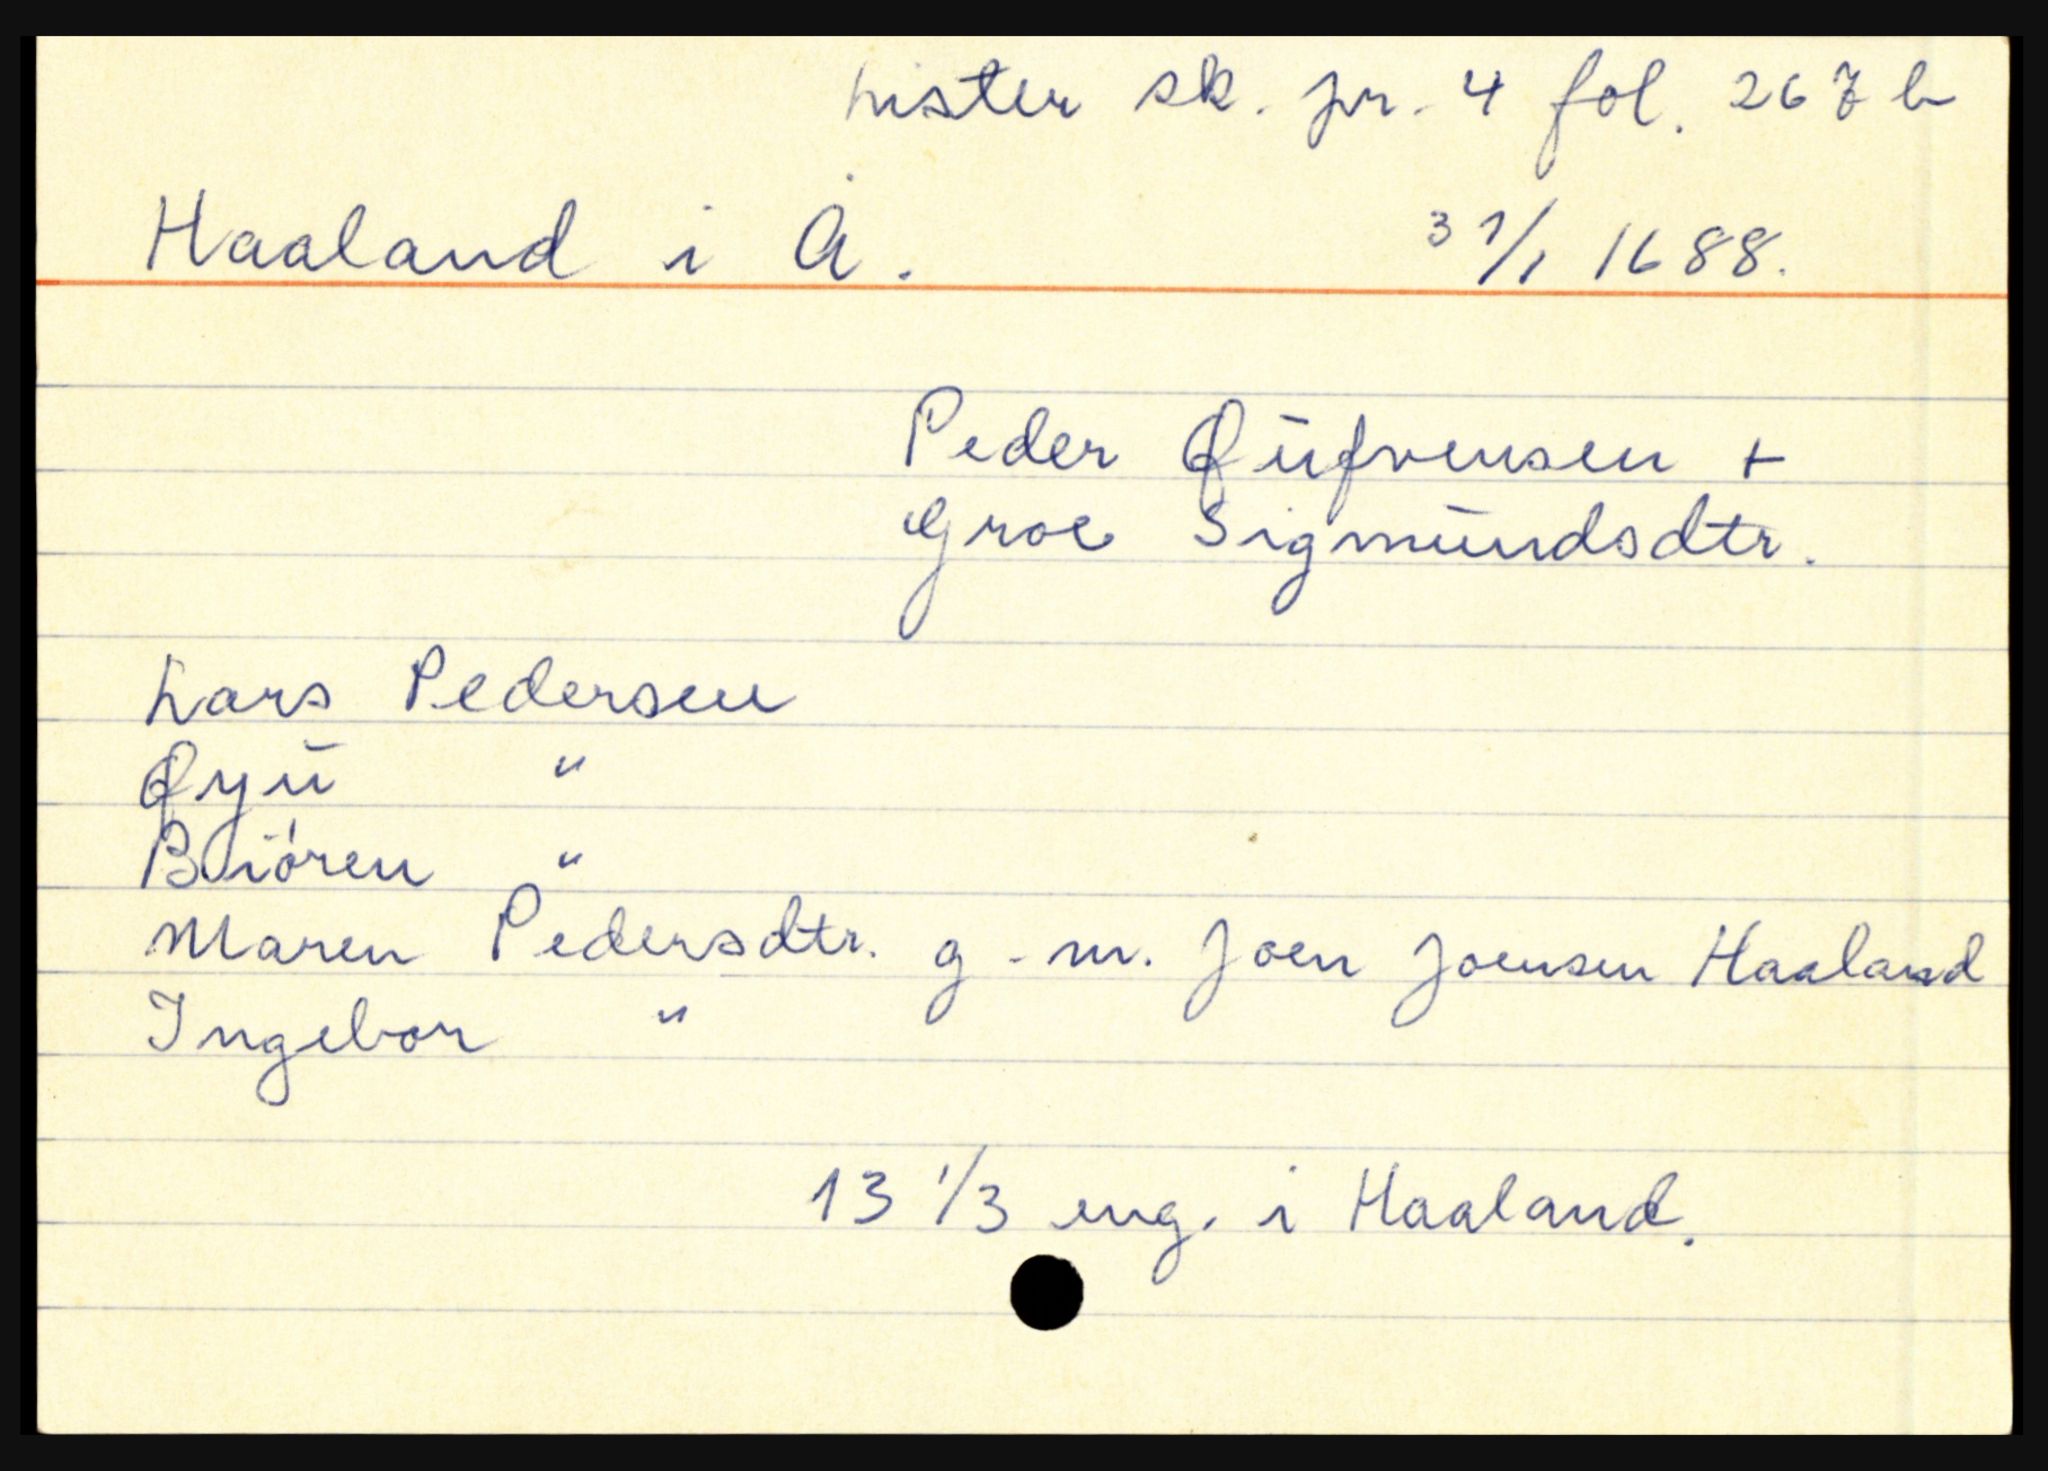 Lister sk. pr. 4 fol. 267 b
Haaland i Å. 31/1 1688.
Peder Øufvensen +
Groe Sigmundsdtr.
Lars Pedersen
Øyu "
Biören "
Maren Pedersdtr. g. m. Joen Joensen Haaland
Ingebor "
13 1/3 eng. i Haaland.